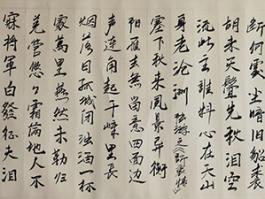 断何處尘暗旧貂裘
胡未灭鬓先秋泪空
流此生谁料心在天山
身老沧洲 陆游之诉衷情
塞下秋来风景异衡
阳雁去无留意四面边
声连角起千嶂里长
烟落日孤城闭浊酒一杯
家万里燕然未勒归
羌管悠悠霜满地人不
寐将军白发征夫泪